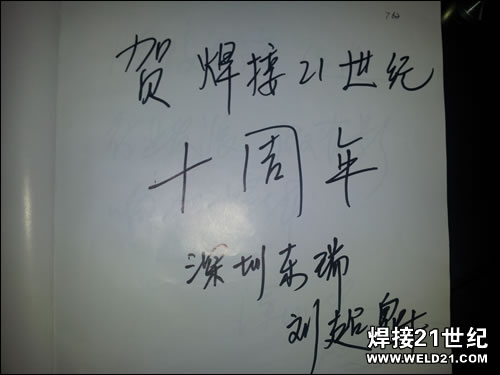 贺焊接21世纪
十周年
深圳东瑞
刘超
焊接21世纪
WWW.WELD21.COM